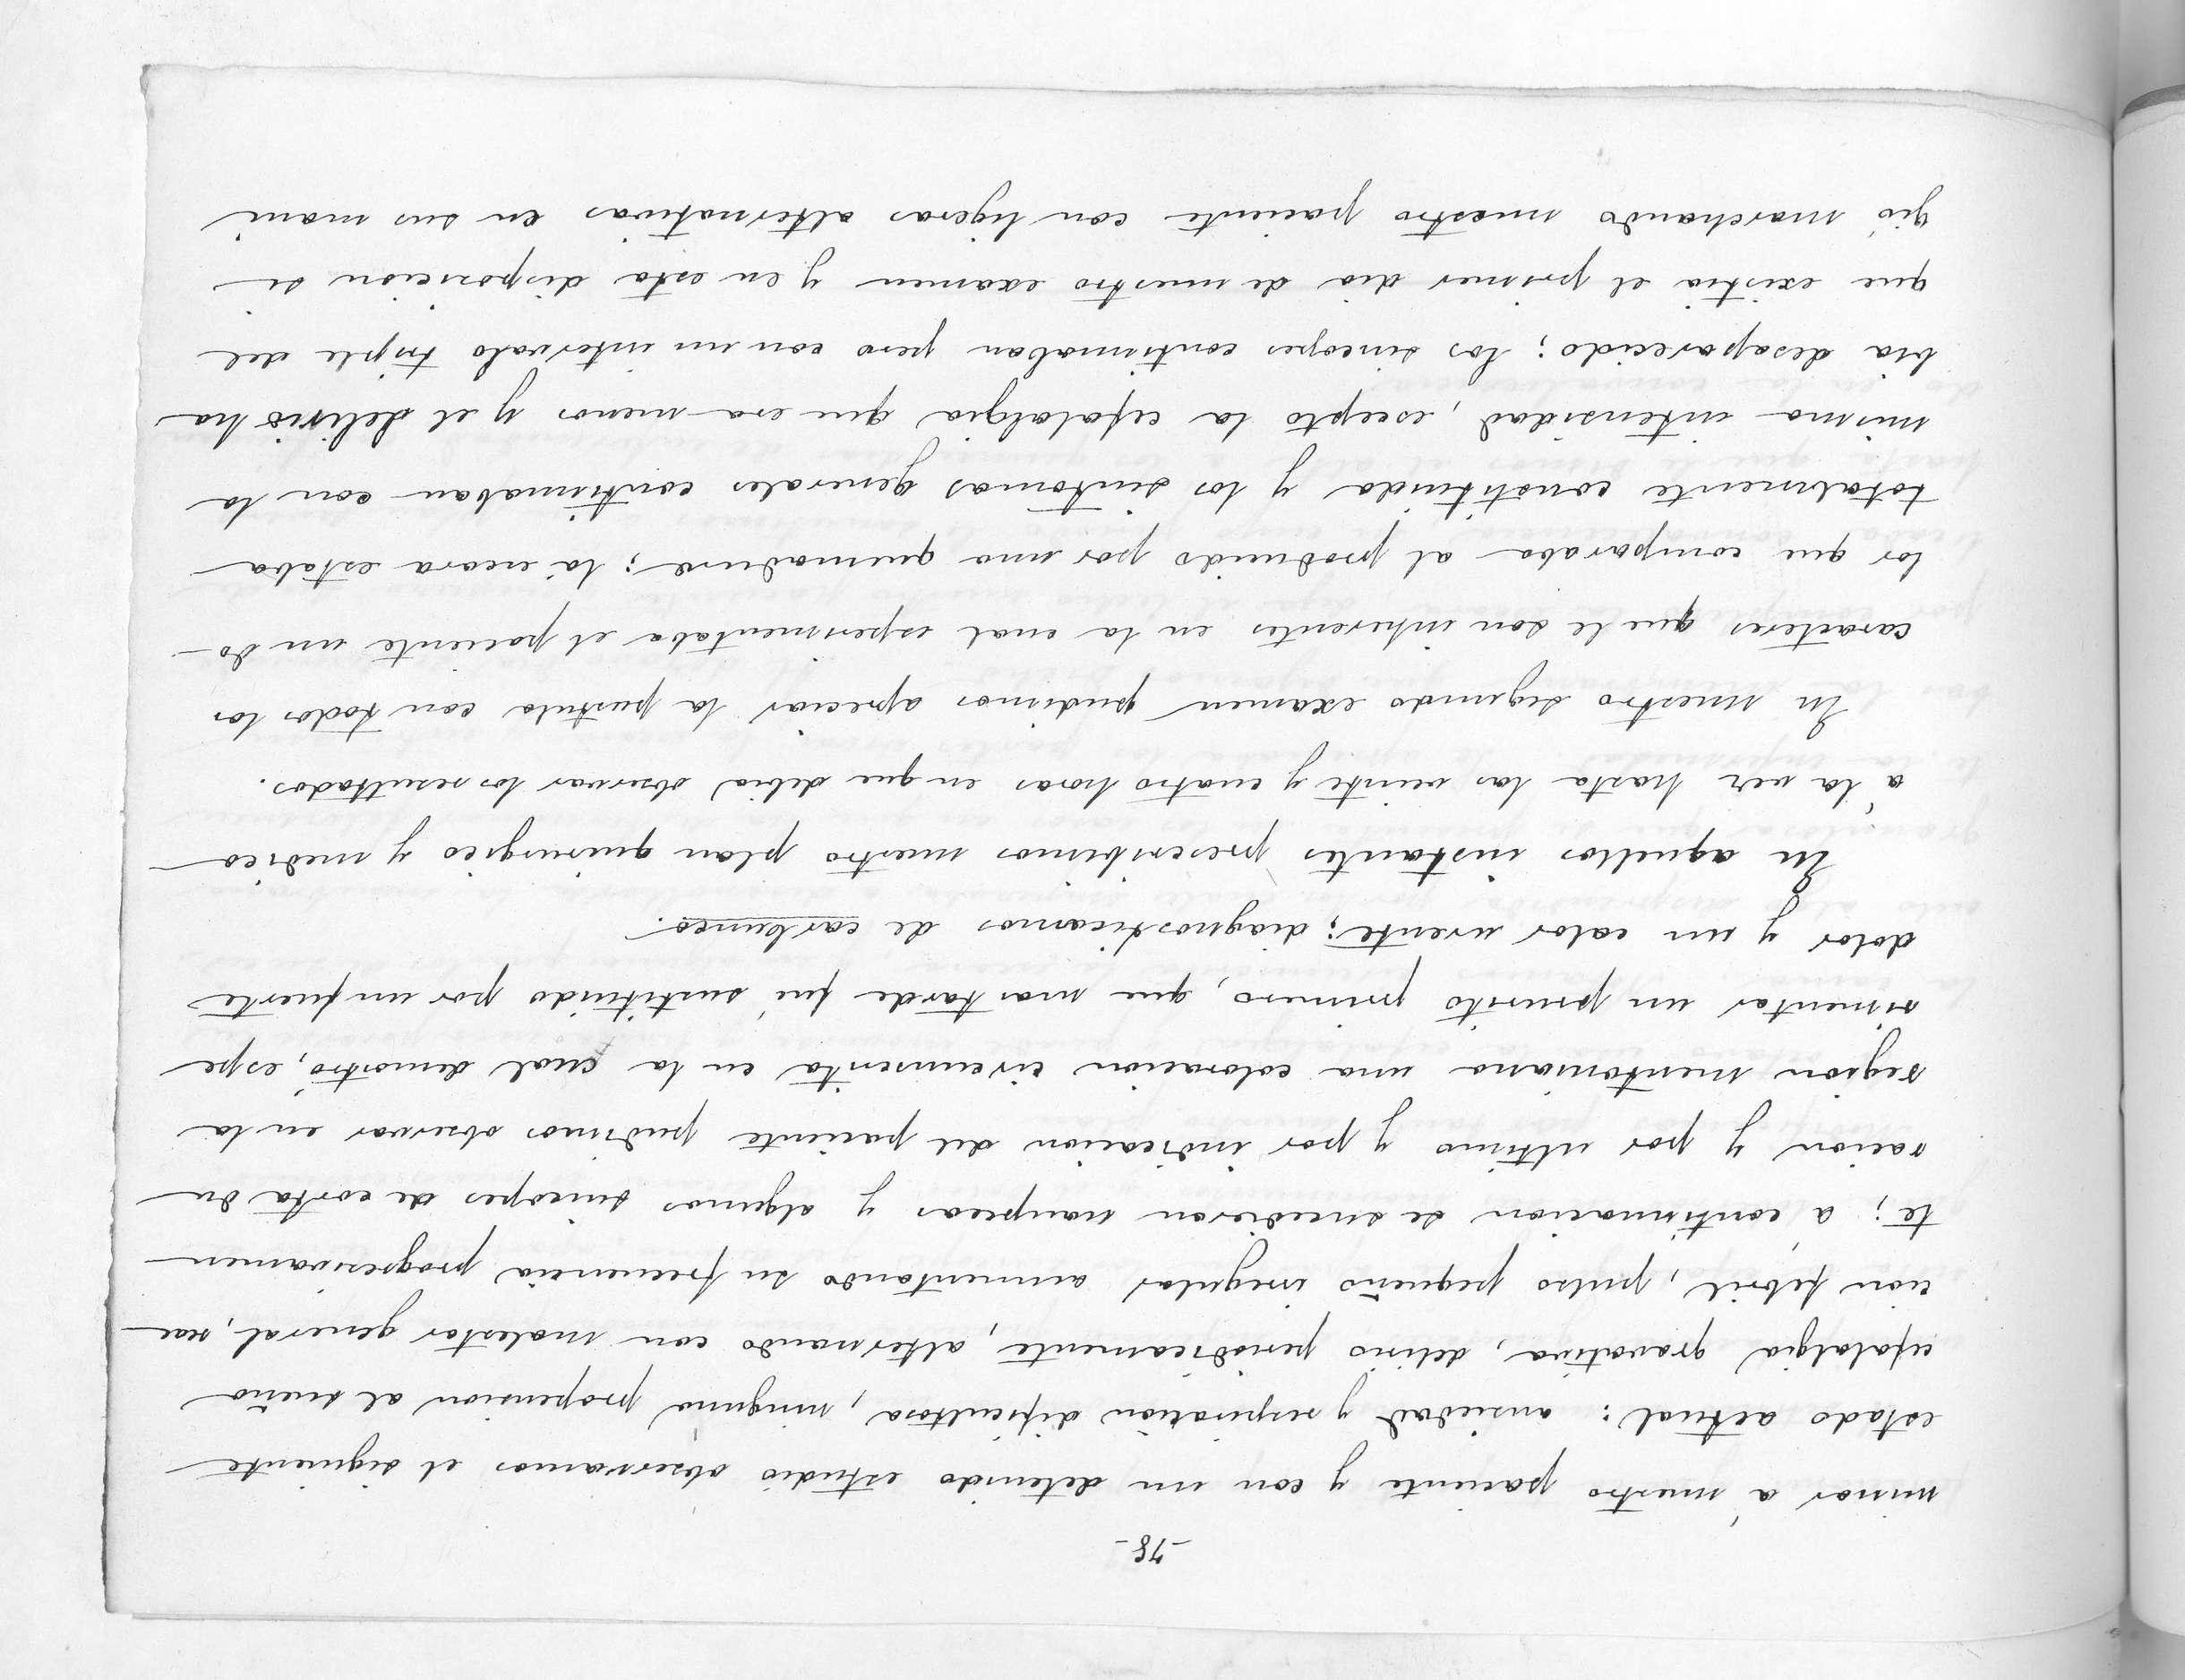 -78-
minar á nuestro paciente y con un detenido estudio observamos el siguiente
estado actual: ansiedad y respiration dificultosa, ninguna propension al sueño
cefalalgia gravativa, delirio periodicamente, alternando con malestar general, reac
cion febril, pulso pequeño irregular aumentando su frecuencia progresivamen
te; á continuacion se sucedieron nauseas y algunos sincopes de corta du
racion y por ultimo y por indicacion del paciente pudimos observar en la
region mentoniana una coloracion circunscrita en la cual demostró, espe
rimentar un prurito primero, que mas tarde fué sustituido por un fuerte
dolor y un calor urente; diagnosticamos de carbunco.
En aquellos instantes prescribimos nuestro plan quirurgico y medico
á la vez hasta las veinte y cuatro horas en que debia observar los resultados.
En nuestro segundo examen pudimos apreciar la pustula con todos los
caracteres que le son inherentes en la cual esperimentaba el paciente un do-
lor que comparaba al producido por una quemadura; la escara estaba
totalmente constituida y los sintomas generales continuaban con la
misma intensidad, escepto la cefalalgia que era menos y el delirio ha
bia desaparecido; los sincopes continuaban pero con un intervalo triple del
que existia el primer dia de nuestro examen y en esta disposicion si
guió marchando nuestro paciente con ligeras alternativas en sus mani